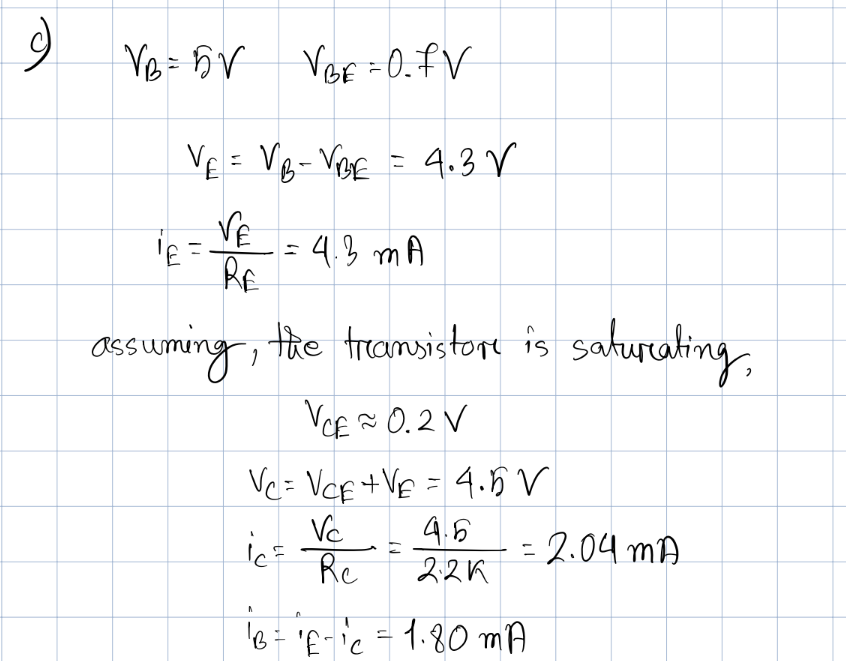 c) V_B = 5V V_BE = 0.7V
V_E = V_B - V_BE = 4.3 V
i_E = V_E / R_E = 4.3 mA
assuming, the transistor is saturating,
V_CE ≈ 0.2 V
V_C = V_CE + V_E = 4.5 V
i_C = V_C / R_C = 4.5 / 2.2K = 2.04 mA
i_B = i_E - i_C = 1.80 mA